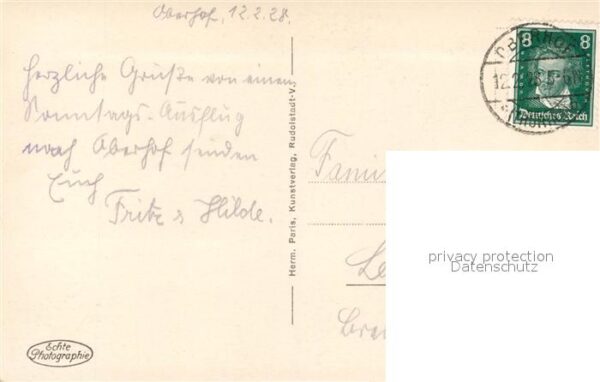 Oberhof, 12.2.28.
Herzliche Grüße von einem
Sonntags-Ausflug
nach Oberhof senden
Euch
Fritz & Hilde.
Echte
Photographie
Herm. Paris, Kunstverlag, Rudolstadt-V.
8 8
Deutsches Reich
OBERHOF
12.2.28
Fami
Le
privacy protection
Datenschutz